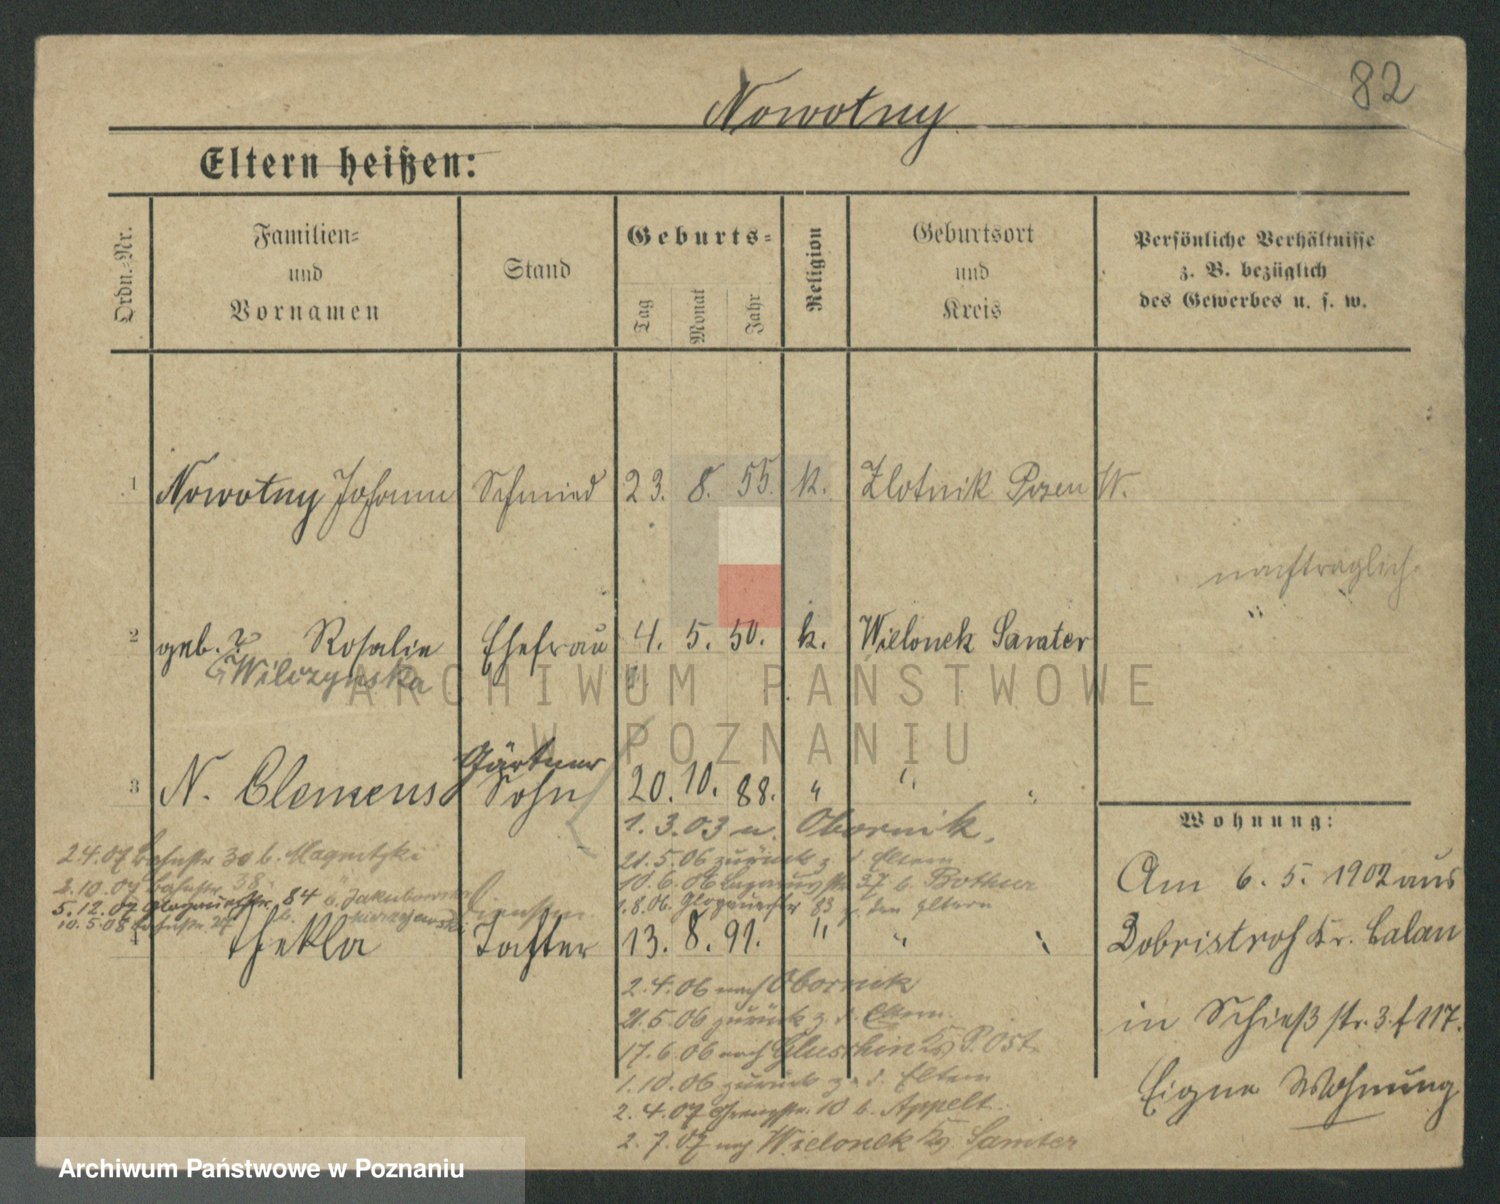 82
Nowotny
Eltern heißen:
Ordn.-Nr.
Familien-
und
Vornamen
Stand
Geburts-
Tag
Monat
Jahr
Religion
Geburtsort
und
Kreis
Persönliche Verhältnisse
z. B. bezüglich
des Gewerbes u. s. w.
1 Nowotny Johann Schmied 23. 8. 55. k. Zlotnik Posen W.
nachträglich
2 geb. ? Rosalie Ehefrau 4. 5. 50. k. Wielonek Samter
Wilczynska
Gärtner
3 N. Clemens Sohn 20. 10. 88. " " "
1. 3. 03 n. Obornik.
21. 5. 06 zurück z. d. Eltern
10. 6. 06 37 b.
1. 8. 06. Glogauerstr 83 z. den Eltern
2.4.07 Bahnstr 30 b.
2.10.07 Bahnstr. 38
5.12.07 Glogauerstr. 84 b. Jakubowski
10.5.08 27 b.
4 Thekla Tochter 13. 8. 91. " " "
2. 4. 06 nach Obornik
21. 5. 06 zurück z. d. Eltern.
17. 6. 06 nach P. Ost
1. 10. 06 zurück z. d. Eltern
2. 4. 07 10 b. Appelt.
2. 7. 07 nach Wielonek Kr. Samter
Wohnung:
Am 6. 5. 1902 aus
Dobristroh Kr. Calau
in Schießstr. 3. f 117.
Eigne Wohnung
ARCHIWUM PAŃSTWOWE
W POZNANIU
Archiwum Państwowe w Poznaniu